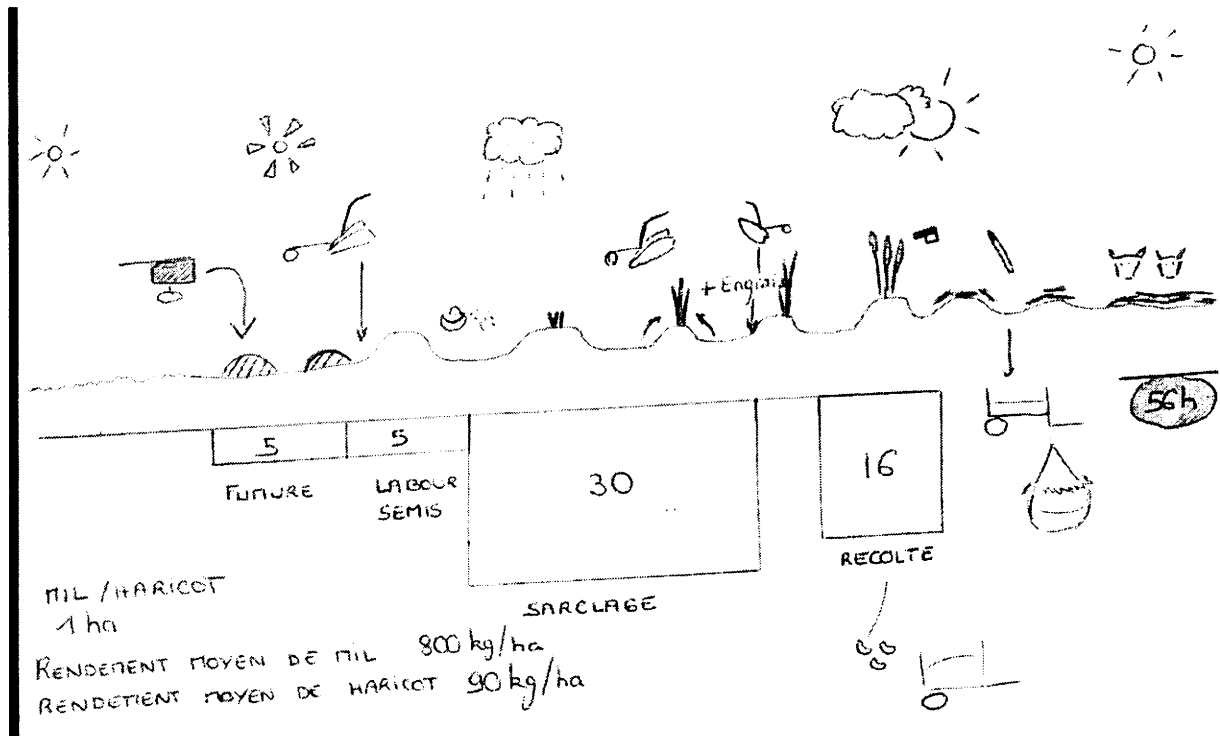 + Engrais
56h
5
5
30
16
FUMURE
LABOUR
SEMIS
RECOLTE
SARCLAGE
MIL / HARICOT
1 ha
RENDEMENT MOYEN DE MIL 800 kg/ha
RENDEMENT MOYEN DE HARICOT 90 kg/ha